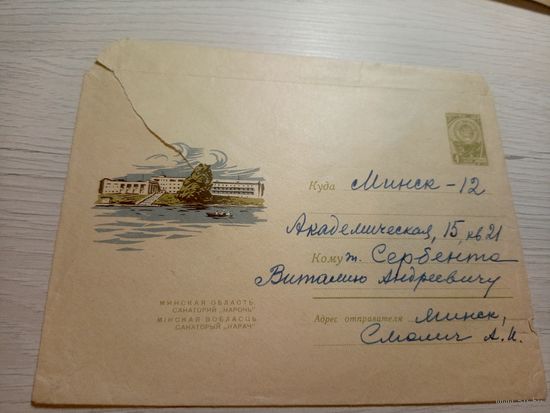 Куда Минск - 12
Академическая, 15, кв 21
Кому т. Сербента
Виталию Андреевичу
МИНСКАЯ ОБЛАСТЬ.
САНАТОРИЙ „НАРОЧЬ“
МІНСКАЯ ВОБЛАСЦЬ.
САНАТОРЫЙ „НАРАЧ“
Адрес отправителя Минск,
Смолич А. И.